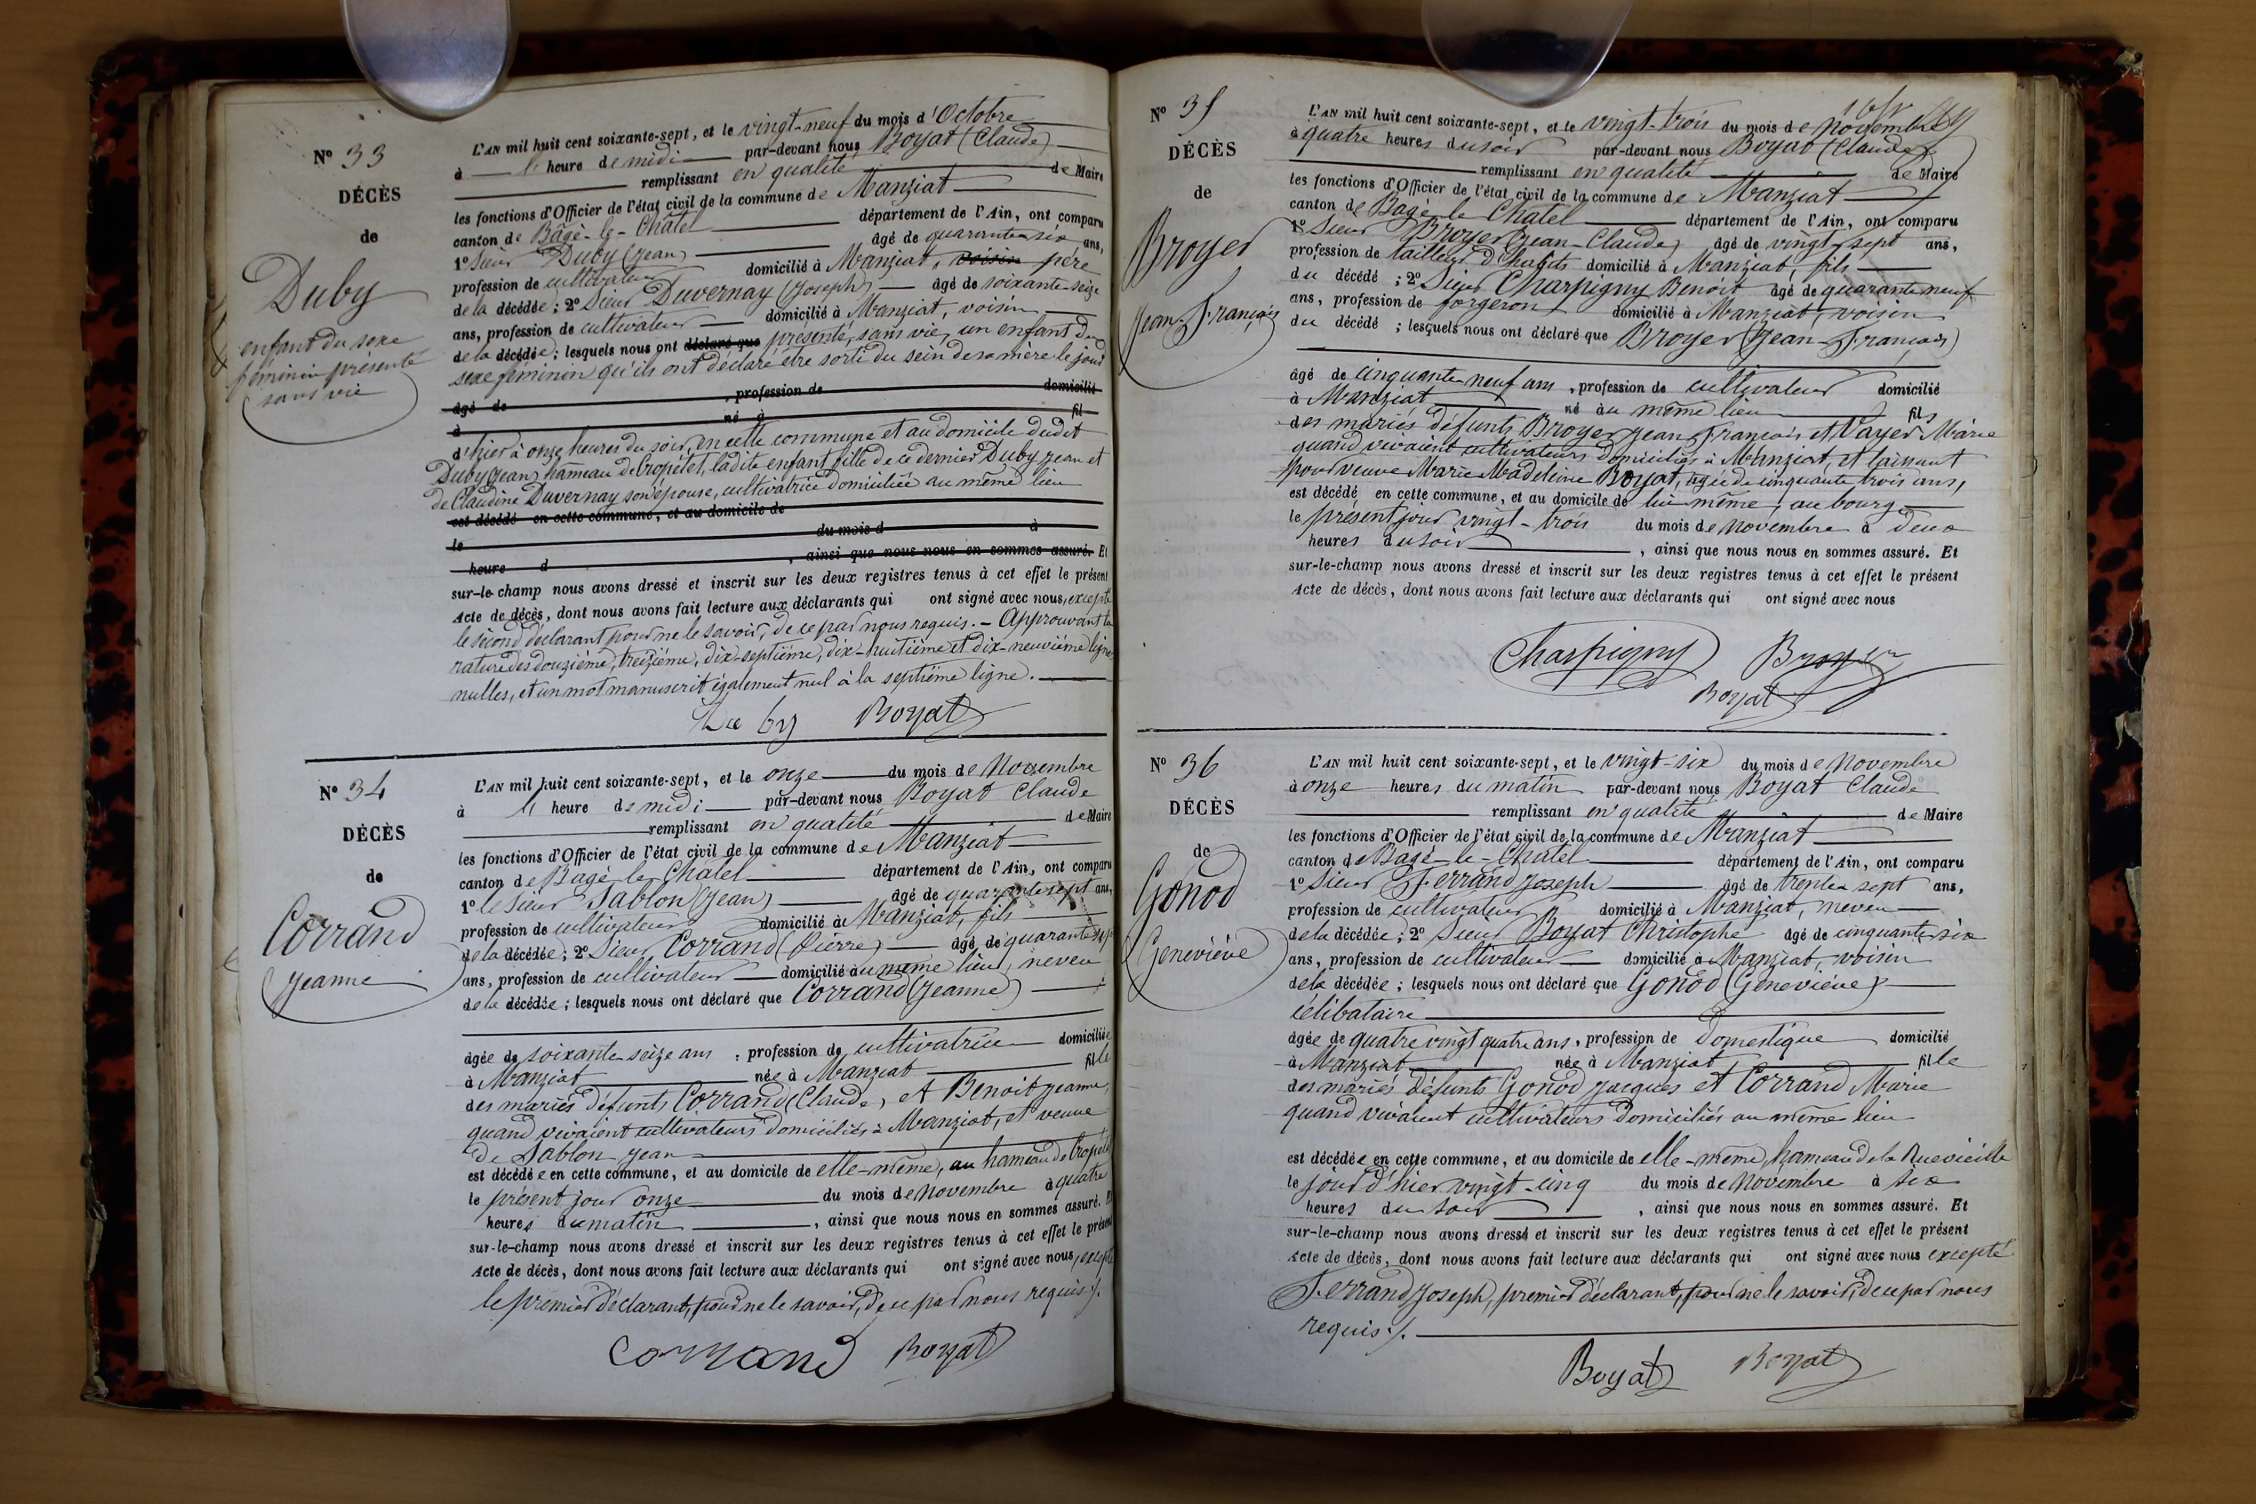 N° 33
DÉCÈS
de
Duby
enfant du sexe
féminin présenté
sans vie
L'AN mil huit cent soixante-sept, et le vingt-neuf du mois d'Octobre
à heure de midi par-devant nous Boyat (Claude)
remplissant en qualité de Maire
les fonctions d'Officier de l'état civil de la commune de Manziat
canton de Bâgé-le-Châtel département de l'Ain, ont comparu
1° Sieur Duby (Jean) âgé de quarante six ans,
profession de cultivateur domicilié à Manziat, voisin père
de la décédée ; 2° Sieur Duvernay (Joseph) âgé de soixante-seize
ans, profession de cultivateur domicilié à Manziat, voisin
de la décédée ; lesquels nous ont déclaré que présenté, sans vie, un enfant du
sexe féminin qu'ils ont déclaré être sorti du sein de sa mère le jour
âgé de , profession de domicilié
à né à fil
d'hier à onze heures du soir, en cette commune et au domicile dudit
Duby Jean, hameau de Cropetet, ladite enfant fille de ce dernier Duby Jean et
de Claudine Duvernay son épouse, cultivatrice domiciliée au même lieu
est décédé en cette commune, et au domicile de
le du mois d à
heure d , ainsi que nous nous en sommes assuré. Et
sur-le-champ nous avons dressé et inscrit sur les deux registres tenus à cet effet le présent
Acte de décès, dont nous avons fait lecture aux déclarants qui ont signé avec nous, excepté
le second déclarant pour ne le savoir, de ce par nous requis. – Approuvant la
rature des douzième, treizième, dix-septième, dix-huitième et dix-neuvième ligne
nulles, et un mot manuscrit également nul à la septième ligne.
Du by Boyat
N° 34
DÉCÈS
de
Corrand
Jeanne
L'AN mil huit cent soixante-sept, et le onze du mois de Novembre
à heure de midi par-devant nous Boyat Claude
remplissant en qualité de Maire
les fonctions d'Officier de l'état civil de la commune de Manziat
canton de Bagé-le-Châtel département de l'Ain, ont comparu
1° le sieur Sablon (Jean) âgé de quarante sept ans,
profession de cultivateur domicilié à Manziat, fils
de la décédée ; 2° Sieur Corrand (Pierre) âgé de quarante
ans, profession de cultivateur domicilié au même lieu, neveu
de la décédée ; lesquels nous ont déclaré que Corrand (Jeanne)
âgée de soixante seize ans , profession de cultivatrice domiciliée
à Manziat née à Manziat fille
des mariés défunts Corrand (Claude, et Benoit Jeanne,
quand vivaient cultivateurs domiciliés à Manziat, et veuve
de Sablon Jean
est décédée en cette commune, et au domicile de elle-même, au hameau de Cropetet
le présent jour onze du mois de novembre à quatre
heures du matin , ainsi que nous nous en sommes assuré. Et
sur-le-champ nous avons dressé et inscrit sur les deux registres tenus à cet effet le présent
Acte de décès, dont nous avons fait lecture aux déclarants qui ont signé avec nous, excepté
le premier déclarant, pour ne le savoir, de ce par nous requis /.
Corrand Boyat
N° 35
DÉCÈS
de
Broyer
Jean-François
L'AN mil huit cent soixante-sept, et le vingt-trois du mois de Novembre
à quatre heures du soir par-devant nous Boyat (Claude)
remplissant en qualité de Maire
les fonctions d'Officier de l'état civil de la commune de Manziat
canton de Bagé-le-Chatel département de l'Ain, ont comparu
1° Sieur Broyer (Jean-Claude) âgé de vingt-sept ans,
profession de tailleur d'habits domicilié à Manziat, fils
du décédé ; 2° Sieur Charpigny Benoit âgé de quarante neuf
ans, profession de forgeron domicilié à Manziat, voisin
du décédé ; lesquels nous ont déclaré que Broyer (Jean-François)
âgé de cinquante neuf ans , profession de cultivateur domicilié
à Manziat né au même lieu fils
des mariés défunts Broyer Jean François et Vayer Marie
quand vivaient cultivateurs domiciliés à Manziat, et laissant
pour veuve Marie Madeleine Boyat, agée de cinquante trois ans,
est décédé en cette commune, et au domicile de lui même, au bourg
le présent jour vingt-trois du mois de novembre à deux
heures du soir , ainsi que nous nous en sommes assuré. Et
sur-le-champ nous avons dressé et inscrit sur les deux registres tenus à cet effet le présent
Acte de décès, dont nous avons fait lecture aux déclarants qui ont signé avec nous
Charpigny Broyer
Boyat
N° 36
DÉCÈS
de
Gonod
Geneviève
L'AN mil huit cent soixante-sept, et le vingt-six du mois de Novembre
à onze heures du matin par-devant nous Boyat Claude
remplissant en qualité de Maire
les fonctions d'Officier de l'état civil de la commune de Manziat
canton de Bagé-le-Chatel département de l'Ain, ont comparu
1° Sieur Ferrand Joseph âgé de trente sept ans,
profession de cultivateur domicilié à Manziat, neveu
de la décédée ; 2° Sieur Boyat Christophe âgé de cinquante six
ans, profession de cultivateur domicilié à Manziat, voisin
de la décédée ; lesquels nous ont déclaré que Gonod (Geneviève)
célibataire
âgée de quatre vingt quatre ans, profession de Domestique domicilié
à Manziat née à Manziat fille
des mariés défunts Gonod Jacques et Corrand Marie
quand vivaient cultivateurs domiciliés au même lieu
est décédée en cette commune, et au domicile de elle-même, hameau de la Ruevieille
le jour d'hier vingt-cinq du mois de Novembre à six
heures du soir , ainsi que nous nous en sommes assuré. Et
sur-le-champ nous avons dressé et inscrit sur les deux registres tenus à cet effet le présent
Acte de décès, dont nous avons fait lecture aux déclarants qui ont signé avec nous excepté
Ferrand Joseph, premier déclarant, pour ne le savoir, de ce par nous
requis /.
Boyat Boyat